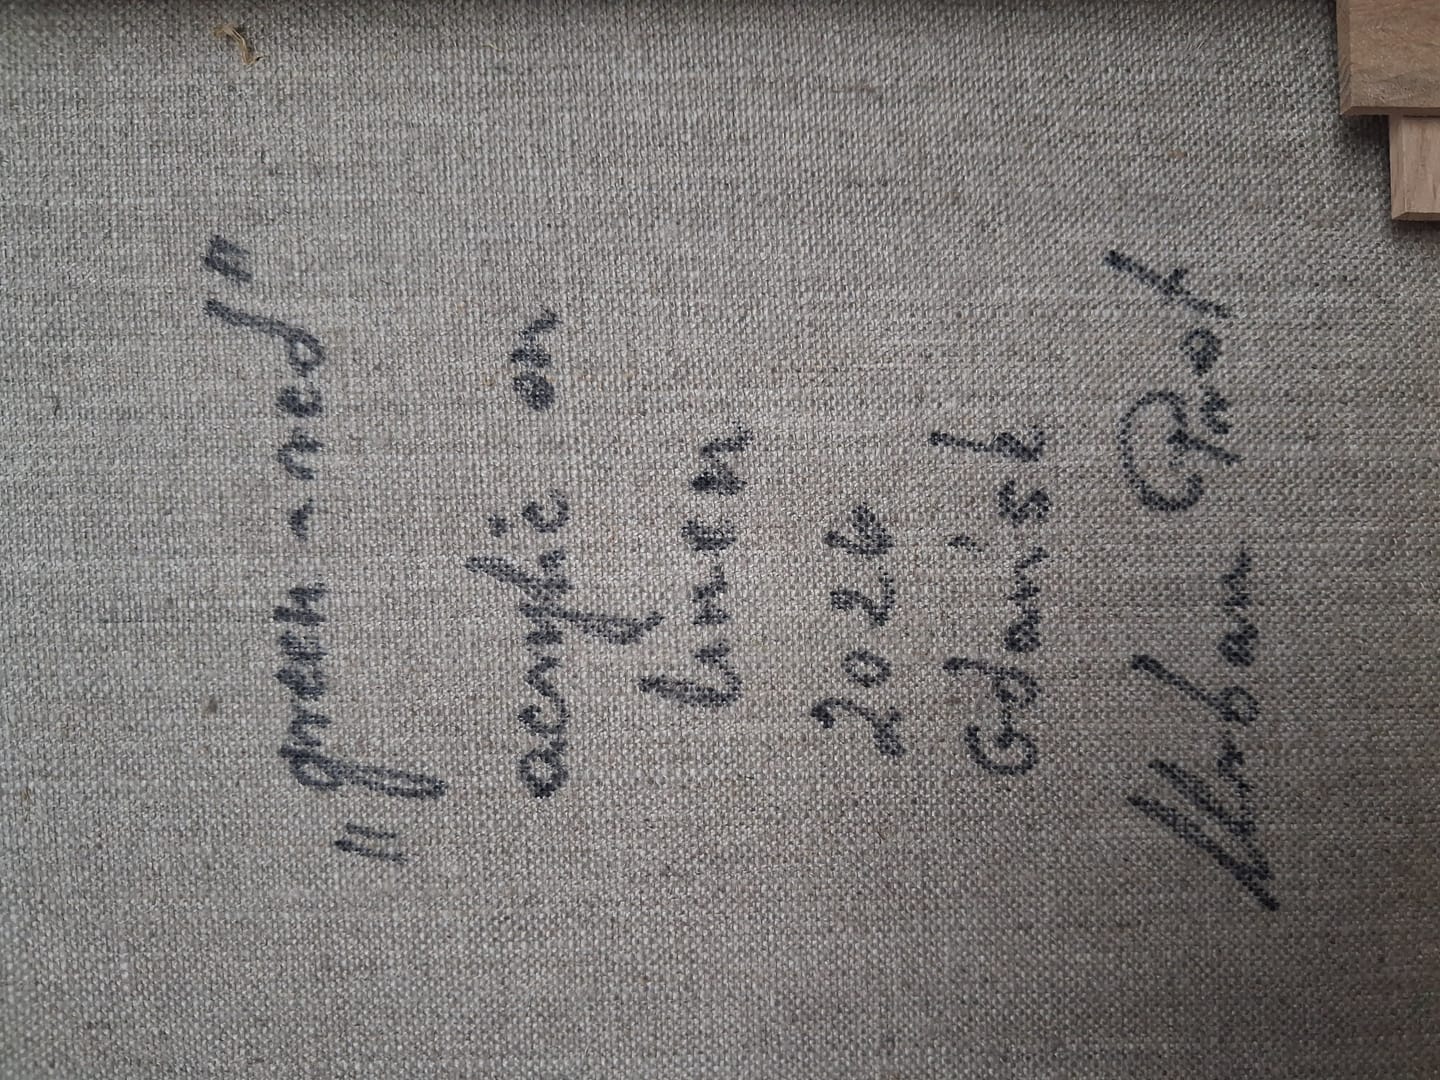 "green-red"
acrylic on
linen
2026
Gdańsk
Urban Prat